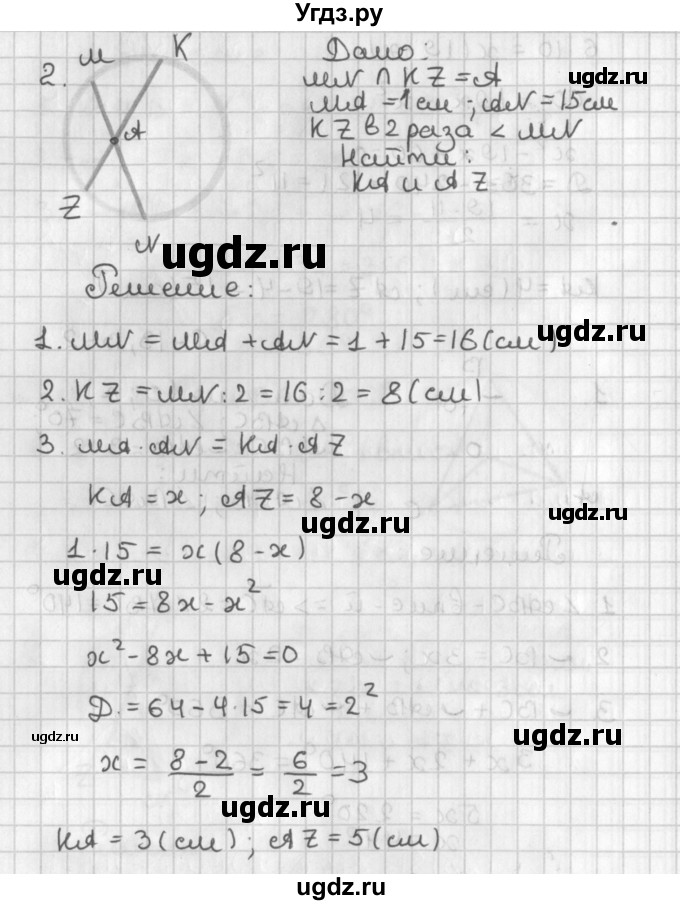 Угдз.ру
2.
M
K
A
Z
N
Дано:
MN ∩ KZ = A
MA = 1 см ; AN = 15 см
KZ в 2 раза < MN
Найти:
KA и AZ
ugdz.ru
ugdz.ru
Решение:
ugdz.ru
1. MN = MA + AN = 1 + 15 = 16 (см)
2. KZ = MN : 2 = 16 : 2 = 8 (см)
3. MA · AN = KA · AZ
KA = x ; AZ = 8 - x
ugdz.ru
ugdz.ru
1 · 15 = x (8 - x)
ugdz.ru
15 = 8x - x²
x² - 8x + 15 = 0
Д. = 64 - 4 · 15 = 4 = 2²
ugdz.ru
ugdz.ru
x = (8 - 2)/2 = 6/2 = 3
ugdz.ru
KA = 3 (см) ; AZ = 5 (см)
ugdz.ru
ugdz.ru